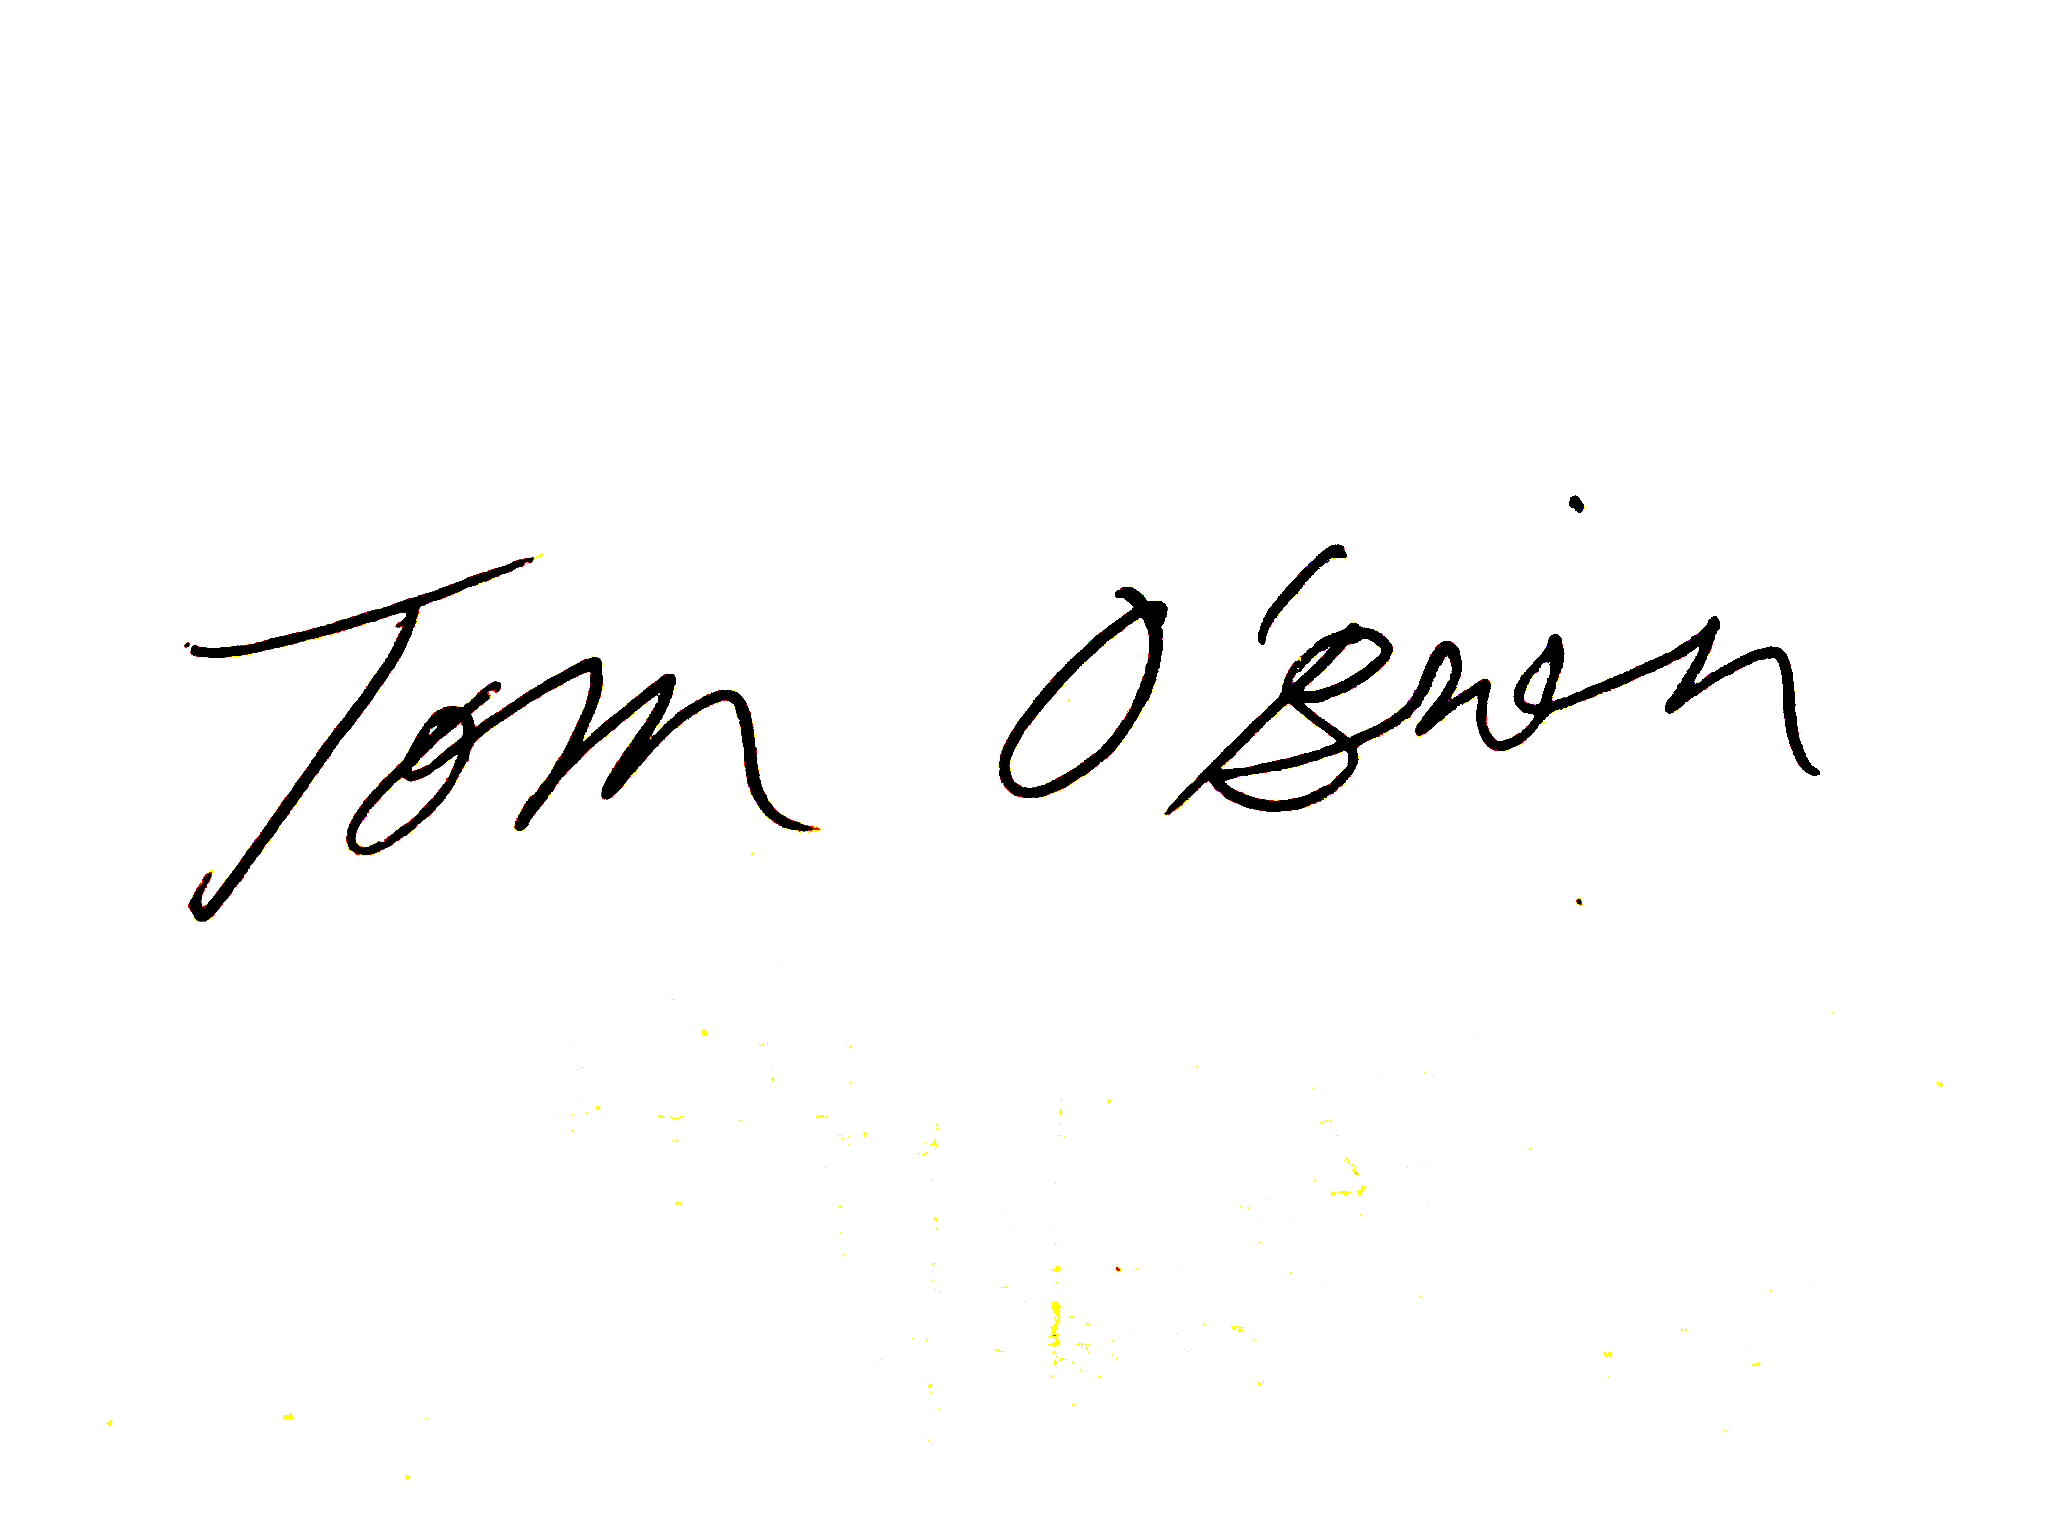 Tom O'Brien